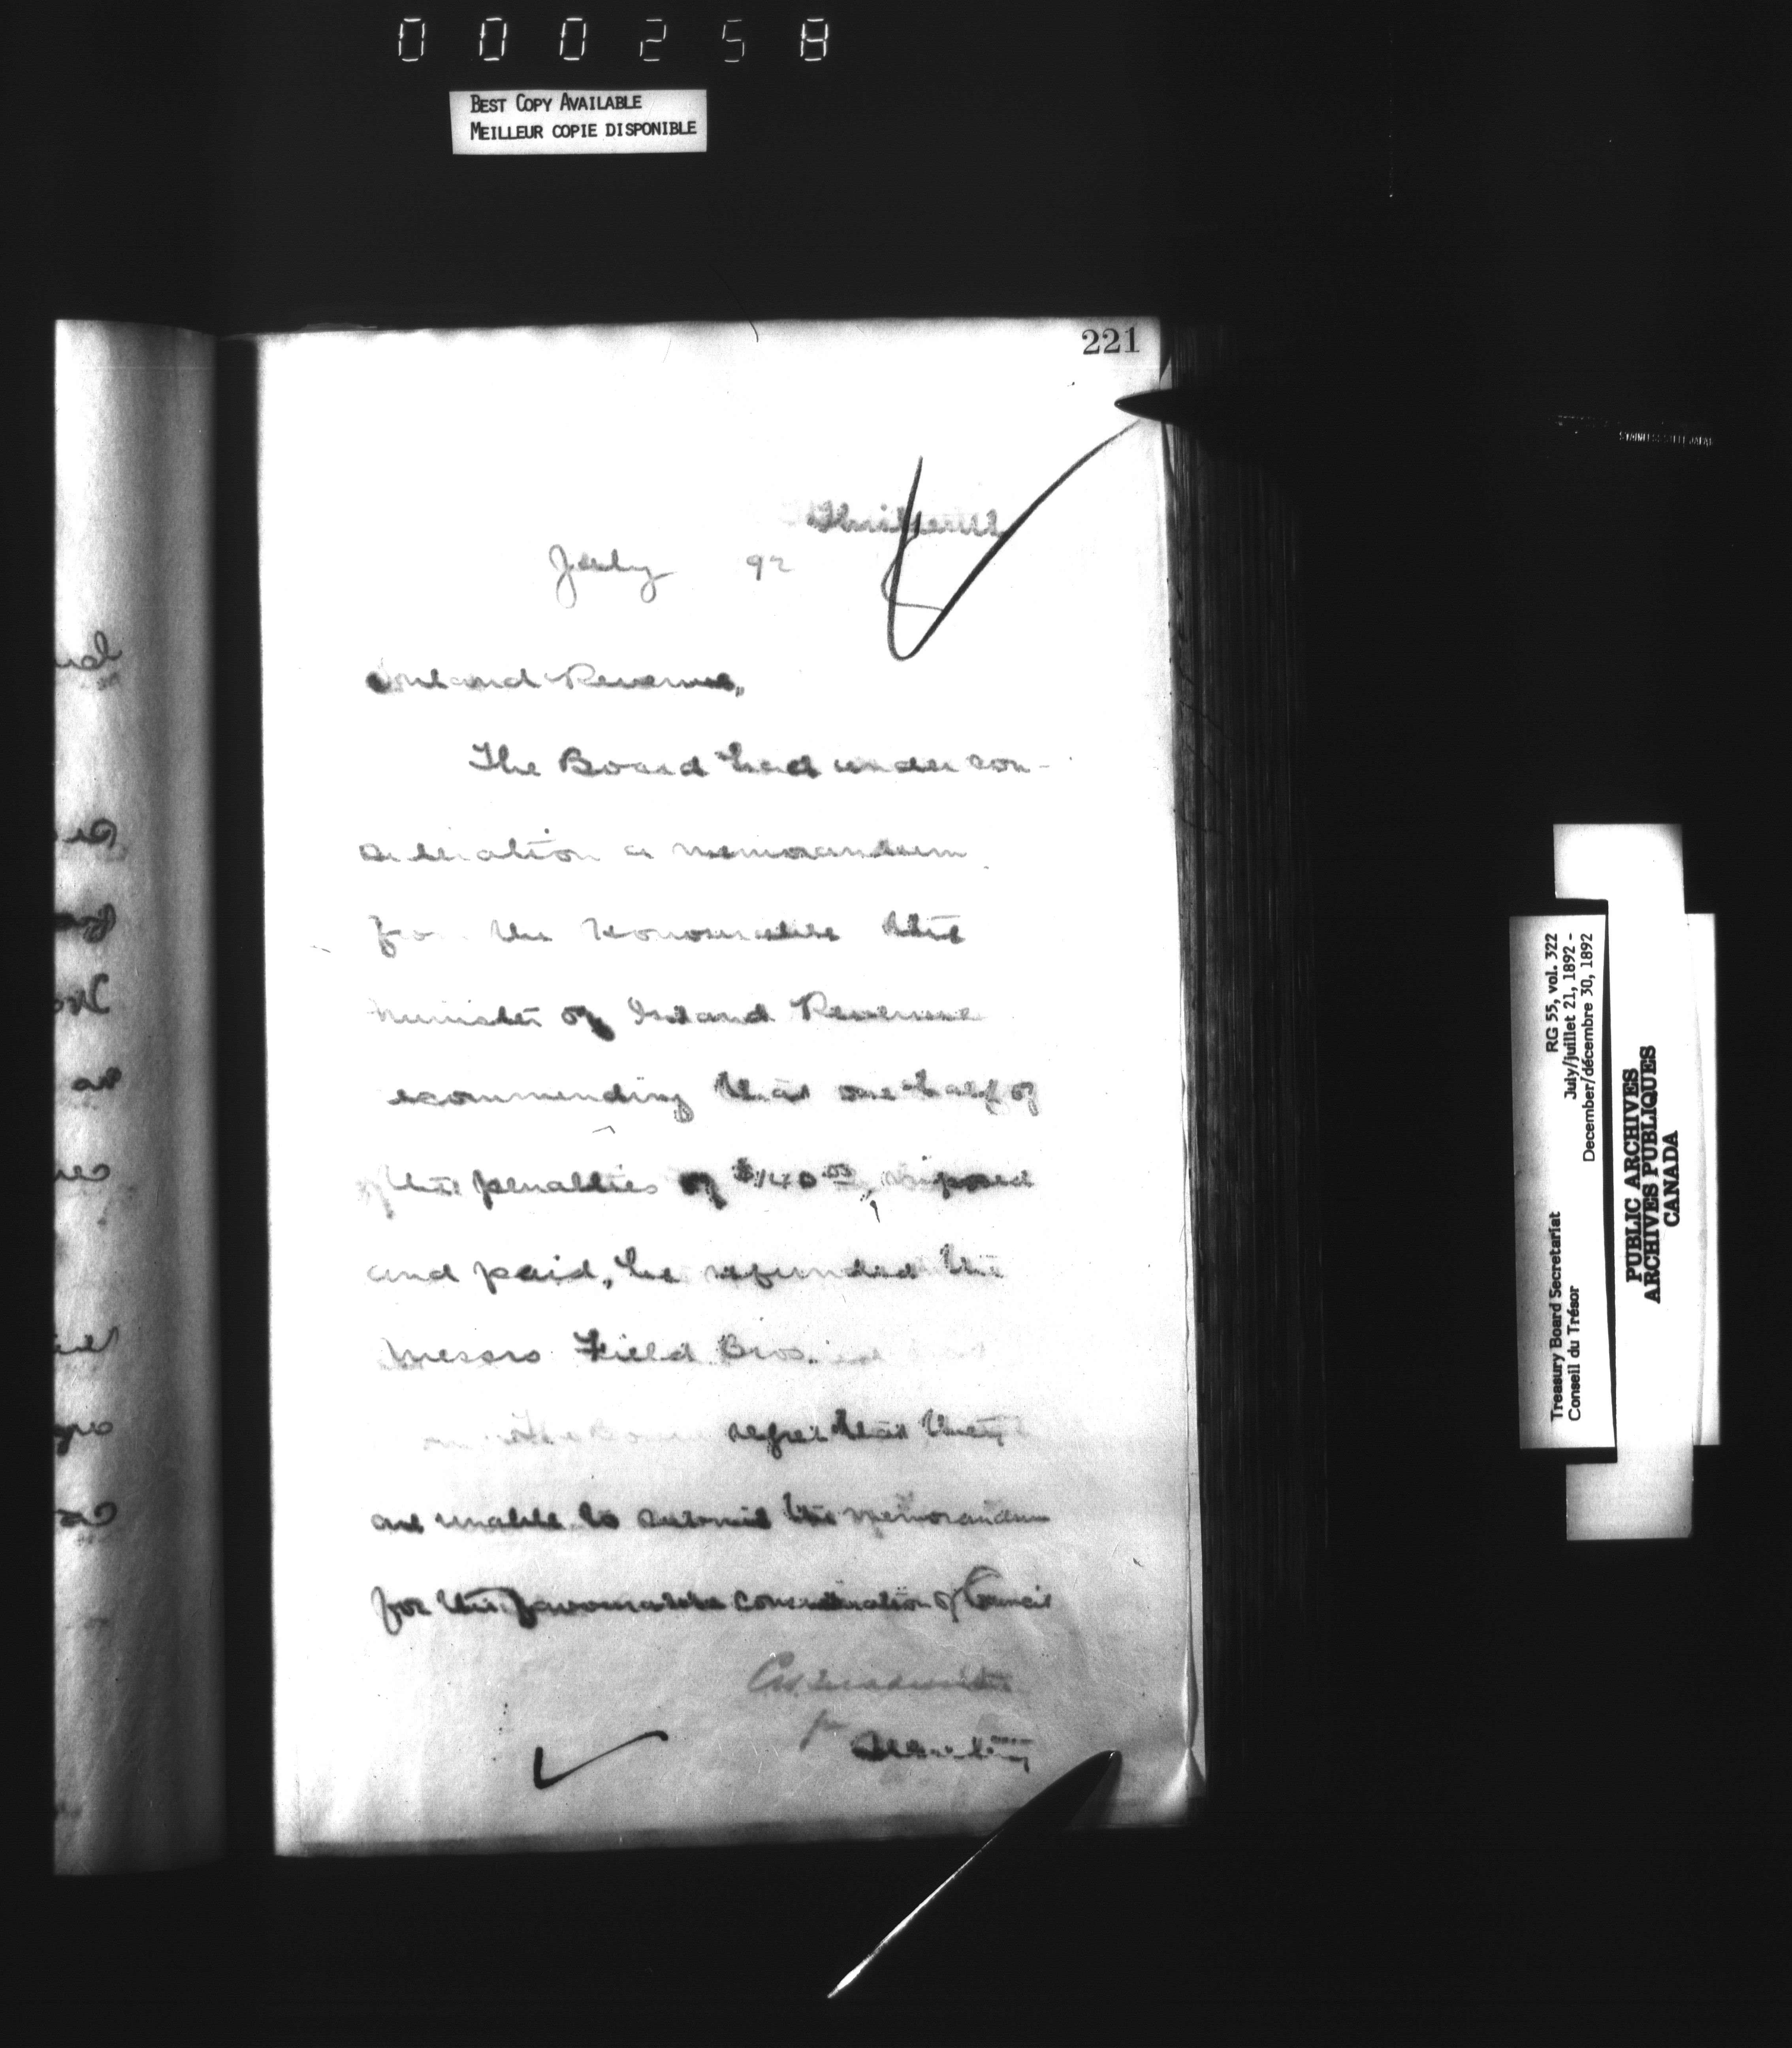 000258
BEST COPY AVAILABLE
MEILLEUR COPIE DISPONIBLE
221
July 92
Inland Revenue,
The Board had under con-
sideration a memorandum
from the Honourable the
Minister of Inland Revenue
recommending that one half of
the penalties of $140.00, imposed
and paid, be refunded the
Messrs Field Bros.
The Board regret that they
are unable to submit the memorandum
for the favourable consideration of Council
for
RG 55, vol. 322
July/juillet 21, 1892 -
December/décembre 30, 1892
Treasury Board Secretariat
Conseil du Trésor
PUBLIC ARCHIVES
ARCHIVES PUBLIQUES
CANADA